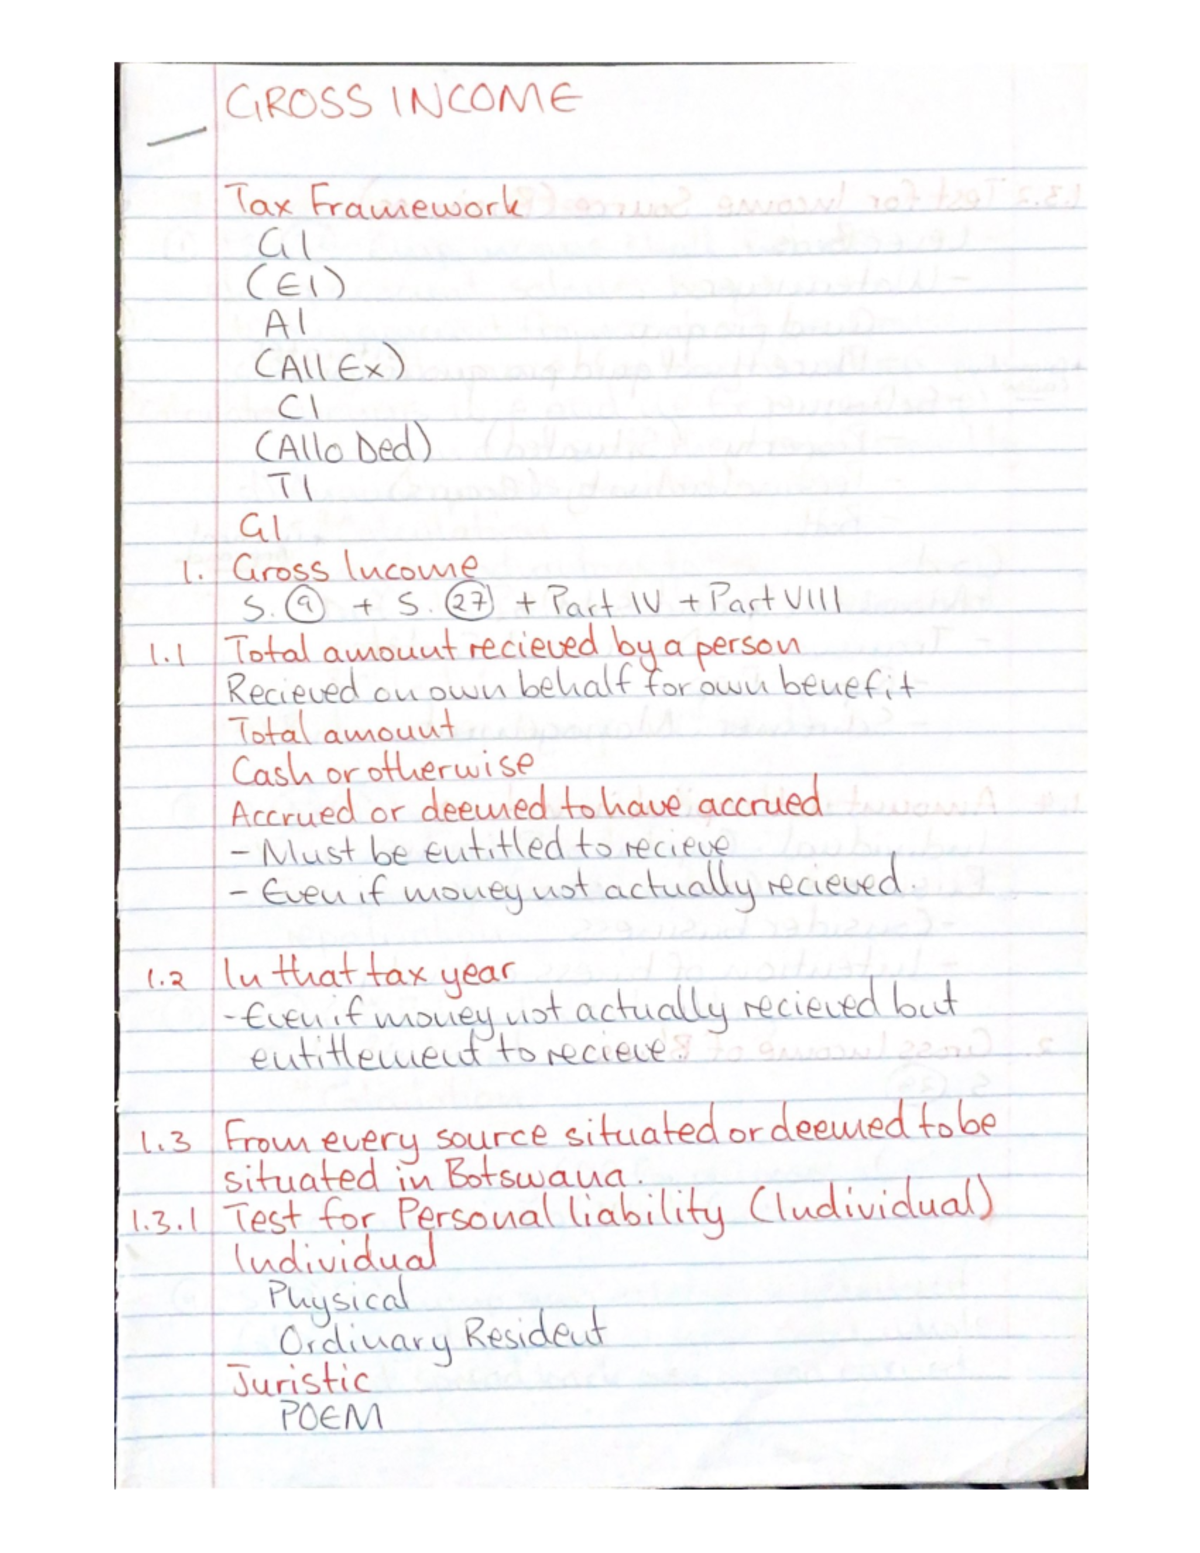 GROSS INCOME
Tax Framework
GI
(EI)
AI
(All Ex)
CI
(Allo Ded)
TI
GI
1. Gross Income
S. 9 + S. 27 + Part IV + Part VIII
1.1 Total amount recieved by a person
Recieved on own behalf for own benefit
Total amount
Cash or otherwise
Accrued or deemed to have accrued
- Must be entitled to recieve
- Even if money not actually recieved.
1.2 In that tax year
- Even if money not actually recieved but
entitlement to recieve.
1.3 From every source situated or deemed to be
situated in Botswana.
1.3.1 Test for Personal liability (Individual)
Individual
Physical
Ordinary Resident
Juristic
POEM